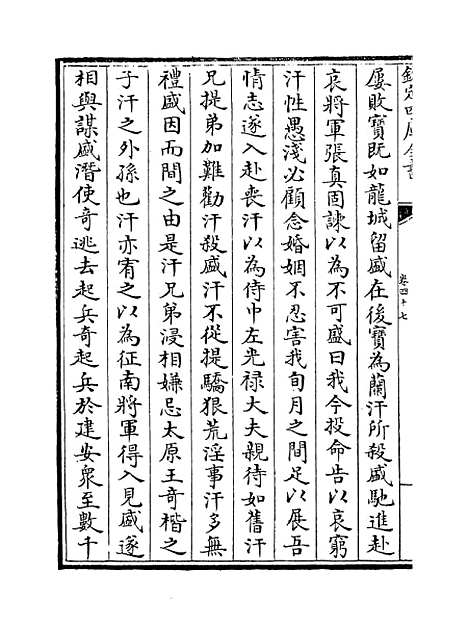 欽定四庫全書
卷四十七
屢敗寶既如龍城留盛在後寶為蘭汗所殺盛馳進赴
哀將軍張真固諫以為不可盛曰我今投命告以哀窮
汗性愚淺必顧念婚姻不忍害我旬月之間足以展吾
情志遂入赴喪汗以為侍中左光禄大夫親待如舊汗
兄提弟加難勸汗殺盛汗不從提驕狠荒淫事汗多無
禮盛因而間之由是汗兄弟浸相嫌忌太原王奇楷之
子汗之外孫也汗亦宥之以為征南將軍得入見盛遂
相與謀盛潛使奇逃去起兵奇起兵於建安衆至數千